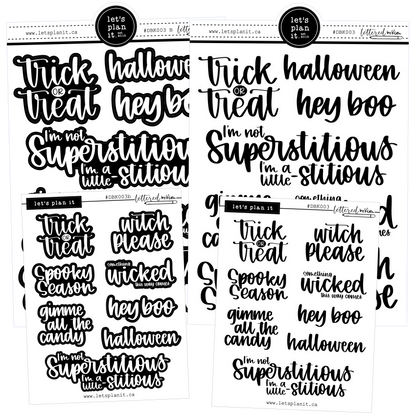 let's
plan
it.
www.letsplanit.ca
#DBK003 B
trick
OR
treat
halloween
hey boo
I'm not
Superstitious
I'm a
little
-stitious
let's
plan
it.
www.letsplanit.ca
#DBK003
lettered
trick
OR
treat
halloween
hey boo
I'm not
Superstitious
I'm a
little
-stitious
let's plan it
#DBK003B
lettered
trick
OR
treat
witch
please
Spooky
Season
something
wicked
this way comes
gimme
all the
candy
hey boo
halloween
I'm not
Superstitious
I'm a
little
-stitious
www.letsplanit.ca
let's plan it
#DBK003
lettered
trick
OR
treat
witch
please
Spooky
Season
something
wicked
this way comes
gimme
all the
candy
hey boo
halloween
I'm not
Superstitious
I'm a
little
-stitious
www.letsplanit.ca